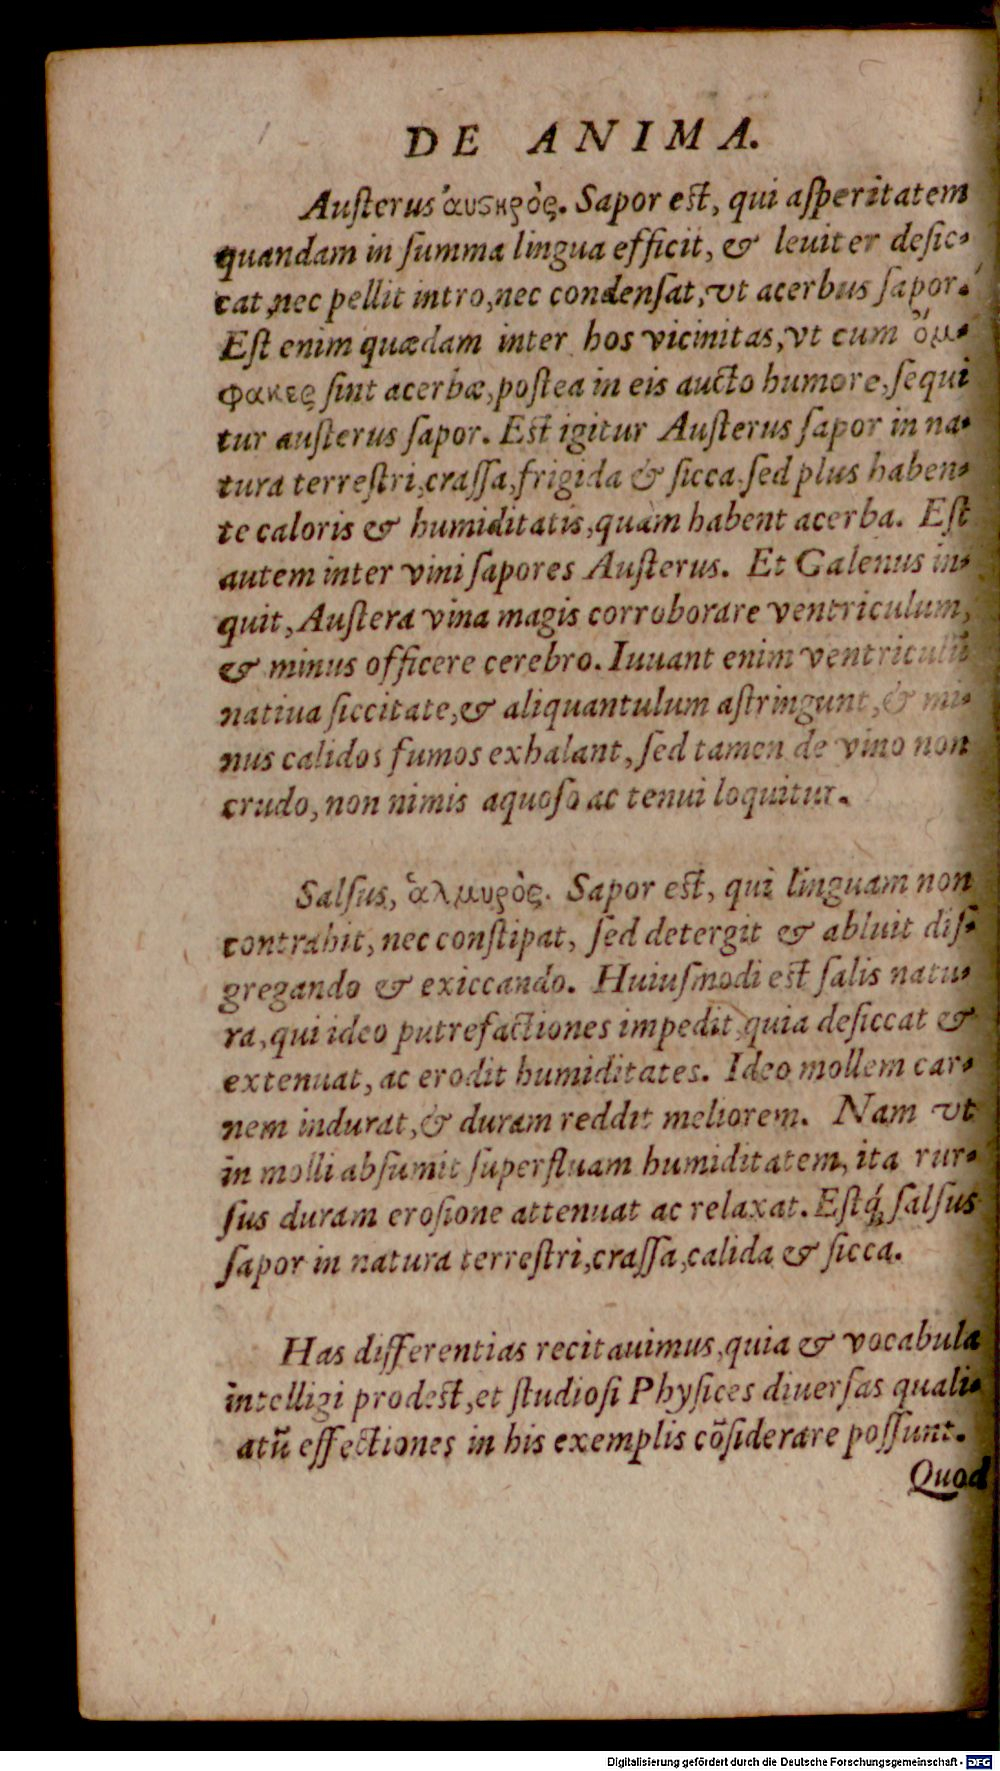 DE ANIMA.
Auſterus ἀυϛηρὸς. Sapor eſt, qui aſperitatem
quandam in ſumma lingua efficit, & leuiter deſic-
cat, nec pellit intro, nec condenſat, vt acerbus ſapor.
Eſt enim quædam inter hos vicinitas, vt cum ὄμ-
φακες ſint acerbæ, poſtea in eis aucto humore, ſequi
tur auſterus ſapor. Eſt igitur Auſterus ſapor in na-
tura terreſtri, craſſa, frigida & ſicca, ſed plus haben-
te caloris & humiditatis, quàm habent acerba. Eſt
autem inter vini ſapores Auſterus. Et Galenus in-
quit, Auſtera vina magis corroborare ventriculum,
& minus officere cerebro. Iuuant enim ventriculũ
natiua ſiccitate, & aliquantulum aſtringunt, & mi-
nus calidos fumos exhalant, ſed tamen de vino non
crudo, non nimis aquoſo ac tenui loquitur.
Salſus, ἁλμυρὸς. Sapor eſt, qui linguam non
contrahit, nec conſtipat, ſed detergit & abluit diſ-
gregando & exiccando. Huiuſmodi eſt ſalis natu-
ra, qui ideo putrefactiones impedit, quia deſiccat &
extenuat, ac erodit humiditates. Ideo mollem car-
nem indurat, & duram reddit meliorem. Nam vt
in molli abſumit ſuperfluam humiditatem, ita rur-
ſus duram eroſione attenuat ac relaxat. Eſtq́; ſalſus
ſapor in natura terreſtri, craſſa, calida & ſicca.
Has differentias recitauimus, quia & vocabula
intelligi prodeſt, et ſtudioſi Phyſices diuerſas quali-
atũ effectiones in his exemplis cõſiderare poſſunt.
Quod
Digitalisierung gefördert durch die Deutsche Forschungsgemeinschaft - DFG